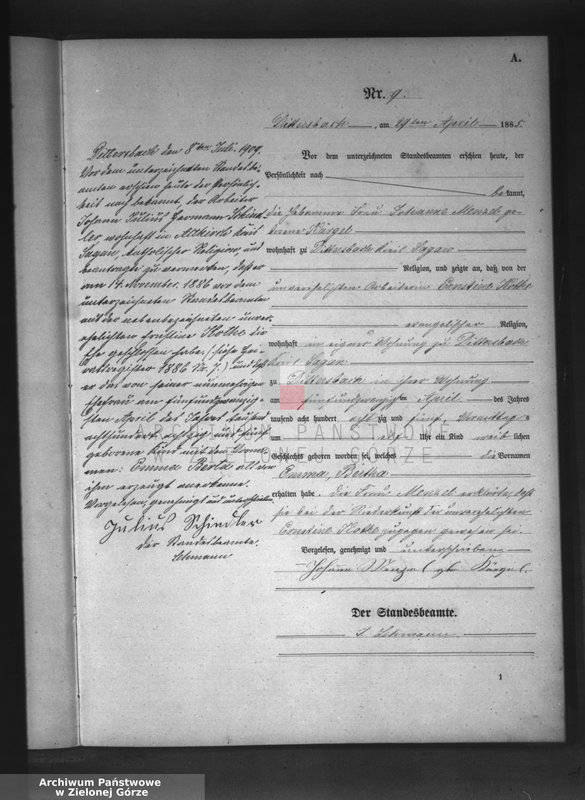 A.
Nr. 9.
Dittersbach, am 29ten April 1885.
Vor dem unterzeichneten Standesbeamten erschien heute, der
Persönlichkeit nach
bekannt,
die Hebamme Frau Johanne Menzel ge-
borene Kärgel
wohnhaft zu Dittersbach Kreis Sagan
Religion, und zeigte an, daß von der
unverehelichten Arbeiterin Ernstine Kothe
evangelischer Religion,
wohnhaft in eigner Wohnung zu Dittersbach
Kreis Sagan
zu Dittersbach in ihrer Wohnung
am fünfundzwanzigsten April des Jahres
tausend acht hundert achtzig und fünf, Vormittag
um elf Uhr ein Kind weiblichen
Geschlechts geboren worden sei, welches die Vornamen
Emma, Bertha
erhalten habe. Die Frau Menzel erklärte, daß
sie bei der Niederkunft der unverehelichten
Ernstine Kothe zugegen gewesen sei.
Vorgelesen, genehmigt und unterschrieben
Johanne Menzel geb. Kärgel.
Der Standesbeamte.
Lehmann.
1
Dittersbach den 8ten Juli 1909.
Vor dem unterzeichneten Standesbe-
amten erschien heute der Persönlich-
keit nach bekannt, der Arbeiter
Johann Julius Hermann Schind-
ler wohnhaft in Altkirch Kreis
Sagan, katholischer Religion, und
beantragte zu vermerken, daß er
am 14. November 1886 vor dem
unterzeichneten Standesbeamten
mit der nebenbezeichneten unver-
ehelichten Ernstine Kothe die
Ehe geschlossen habe, (siehe Hei-
ratsregister 1886 Nr. 7.) und daß
er das von seiner nunmehrigen
Ehefrau am fünfundzwanzig-
sten April des Jahres tausend
achthundert achtzig und fünf
geborene Kind mit den Vorna-
men: Emma Berta als von
ihm erzeugt anerkenne.
Vorgelesen, genehmigt und unterschrieben
Julius Schindler
Der Standesbeamte.
Lehmann
ARCHIWUM PAŃSTWOWE
W ZIELONEJ GÓRZE
Archiwum Państwowe
w Zielonej Górze